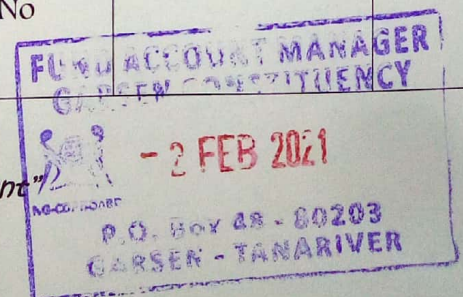 No
FUND ACCOUNT MANAGER
GARSEN CONSTITUENCY
- 2 FEB 2021
nt"
P.O. BOX 48 - 80203
GARSEN - TANARIVER